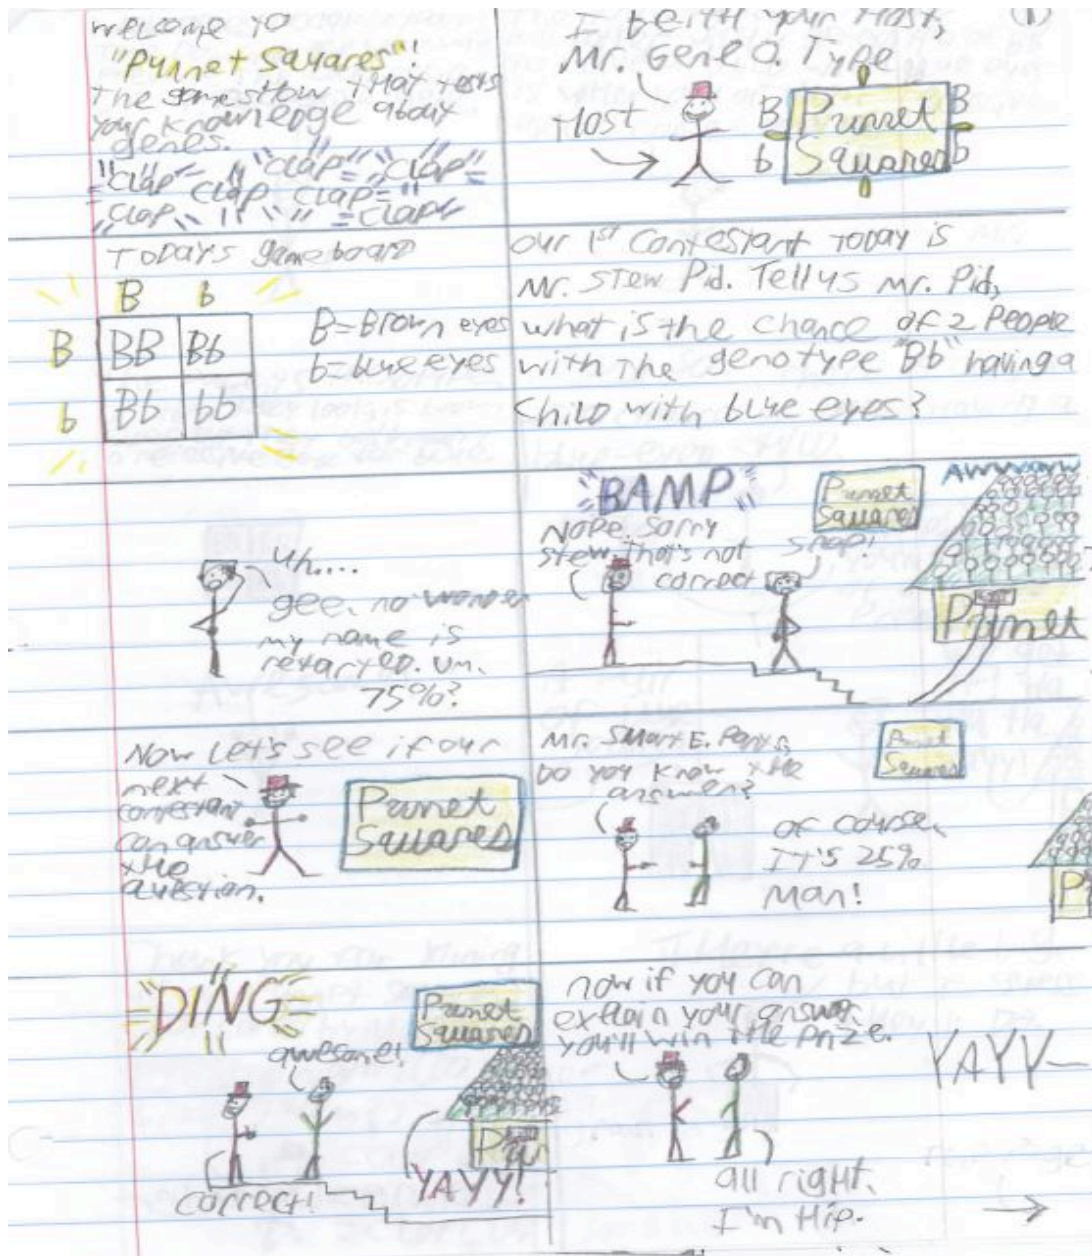 Welcome to
"Punnet Squares"!
The gameshow that tests
your knowledge about
genes.
"clap" "clap" "clap"
clap clap
"clap" "clap"
I beith your Host,
Mr. Gene O. Type
Host
B Punnet B
b Squares b
(1)
Todays game board
B b
B BB Bb
b Bb bb
B=Brown eyes
b=blue eyes
our 1st Contestant today is
Mr. Stew Pid. Tell us Mr. Pid,
what is the chance of 2 People
with the genotype "Bb" having a
child with blue eyes?
uh....
gee, no wonder
my name is
retarted. um.
75%?
"BAMP"
Nope. Sorry
stew, that's not
correct
snap!
Punnet
Squares
AWWWW
Punnet
Now Let's see if our
next
contestant
can answer
the
question.
Punnet
Squares
Mr. Smart E. Pants,
Do you know the
answer?
of course,
It's 25%
Man!
Punnet
Squares
P
DING
awesome!
correct!
Punnet
Squares
Pu
YAYY!
now if you can
explain your answer,
you'll win the prize.
all right.
I'm Hip.
YAYY